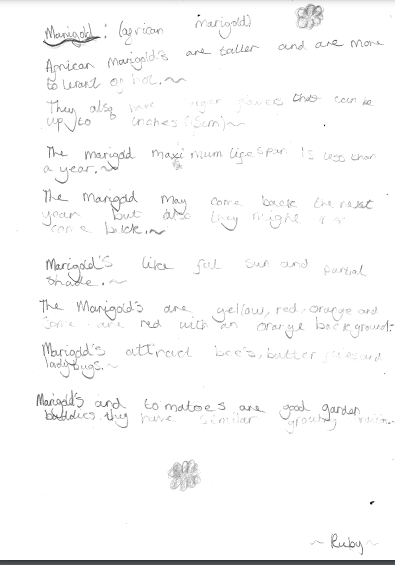 Marigold: (african marigold)
African marigold's are taller and are more
tolerant of hot.~
They also have flowers that can be
up to inches (15cm)~
The marigold maximum lifespan is less than
a year.~
The Marigold may come back the next
year but also they might
come back.~
Marigold's like full sun and partial
shade.~
The Marigold's are yellow, red, orange and
some are red with an orange background.
Marigold's attract bees, butterflies and
ladybugs.~
Marigold's and tomatoes are good garden
buddies they have similar growing
~ Ruby ~